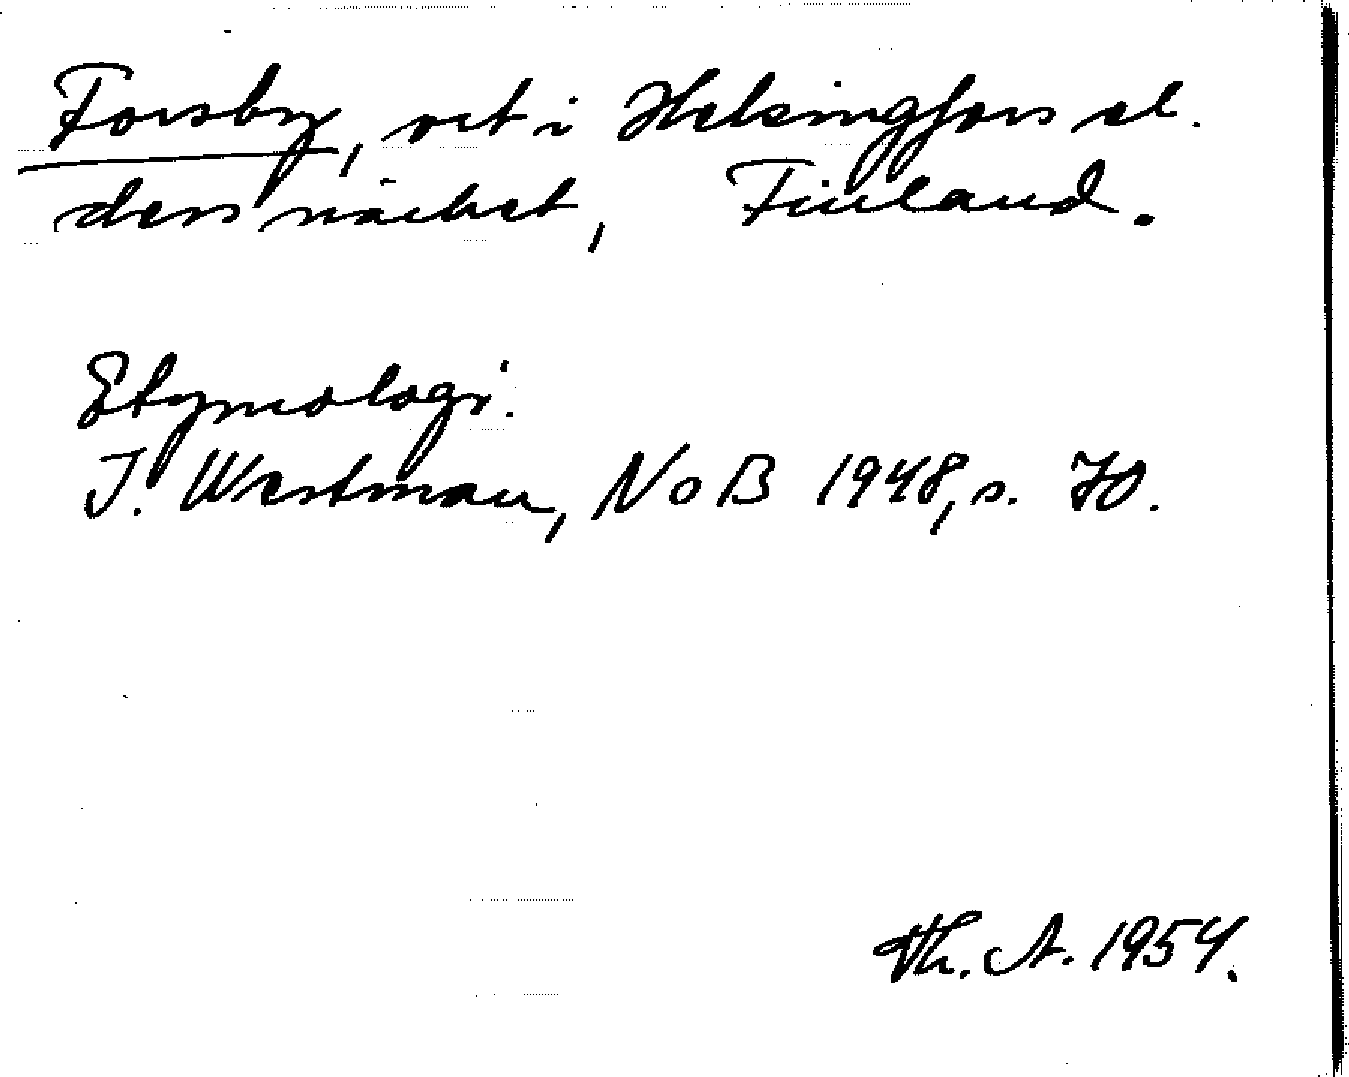 Forsby, ort i Helsingfors el.
dess närhet, Finland.
Etymologi.
I. Westman, NoB 1948, s. 70.
Th. A. 1954.